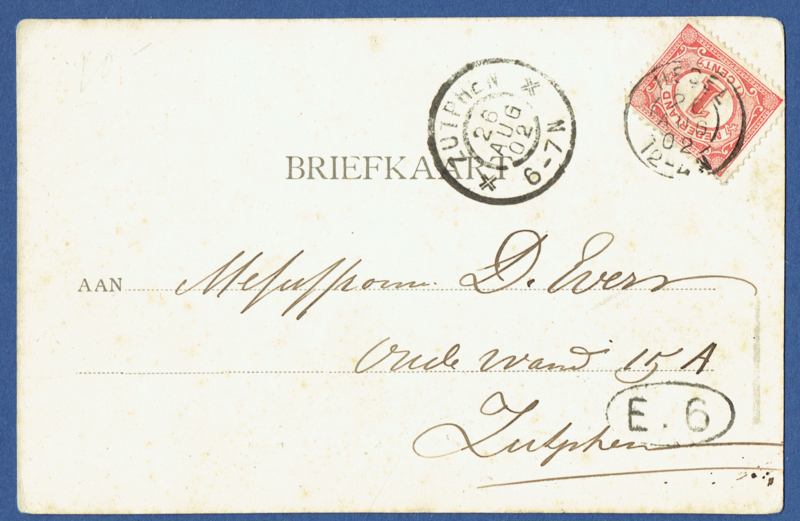 ZUTPHEN
26
AUG
02
6-7N
1 CENT
NEDERLAND
02
12-
BRIEFKAART
AAN Mejuffrouw D. Evers
Oude wand 15 A
E. 6
Zutphen